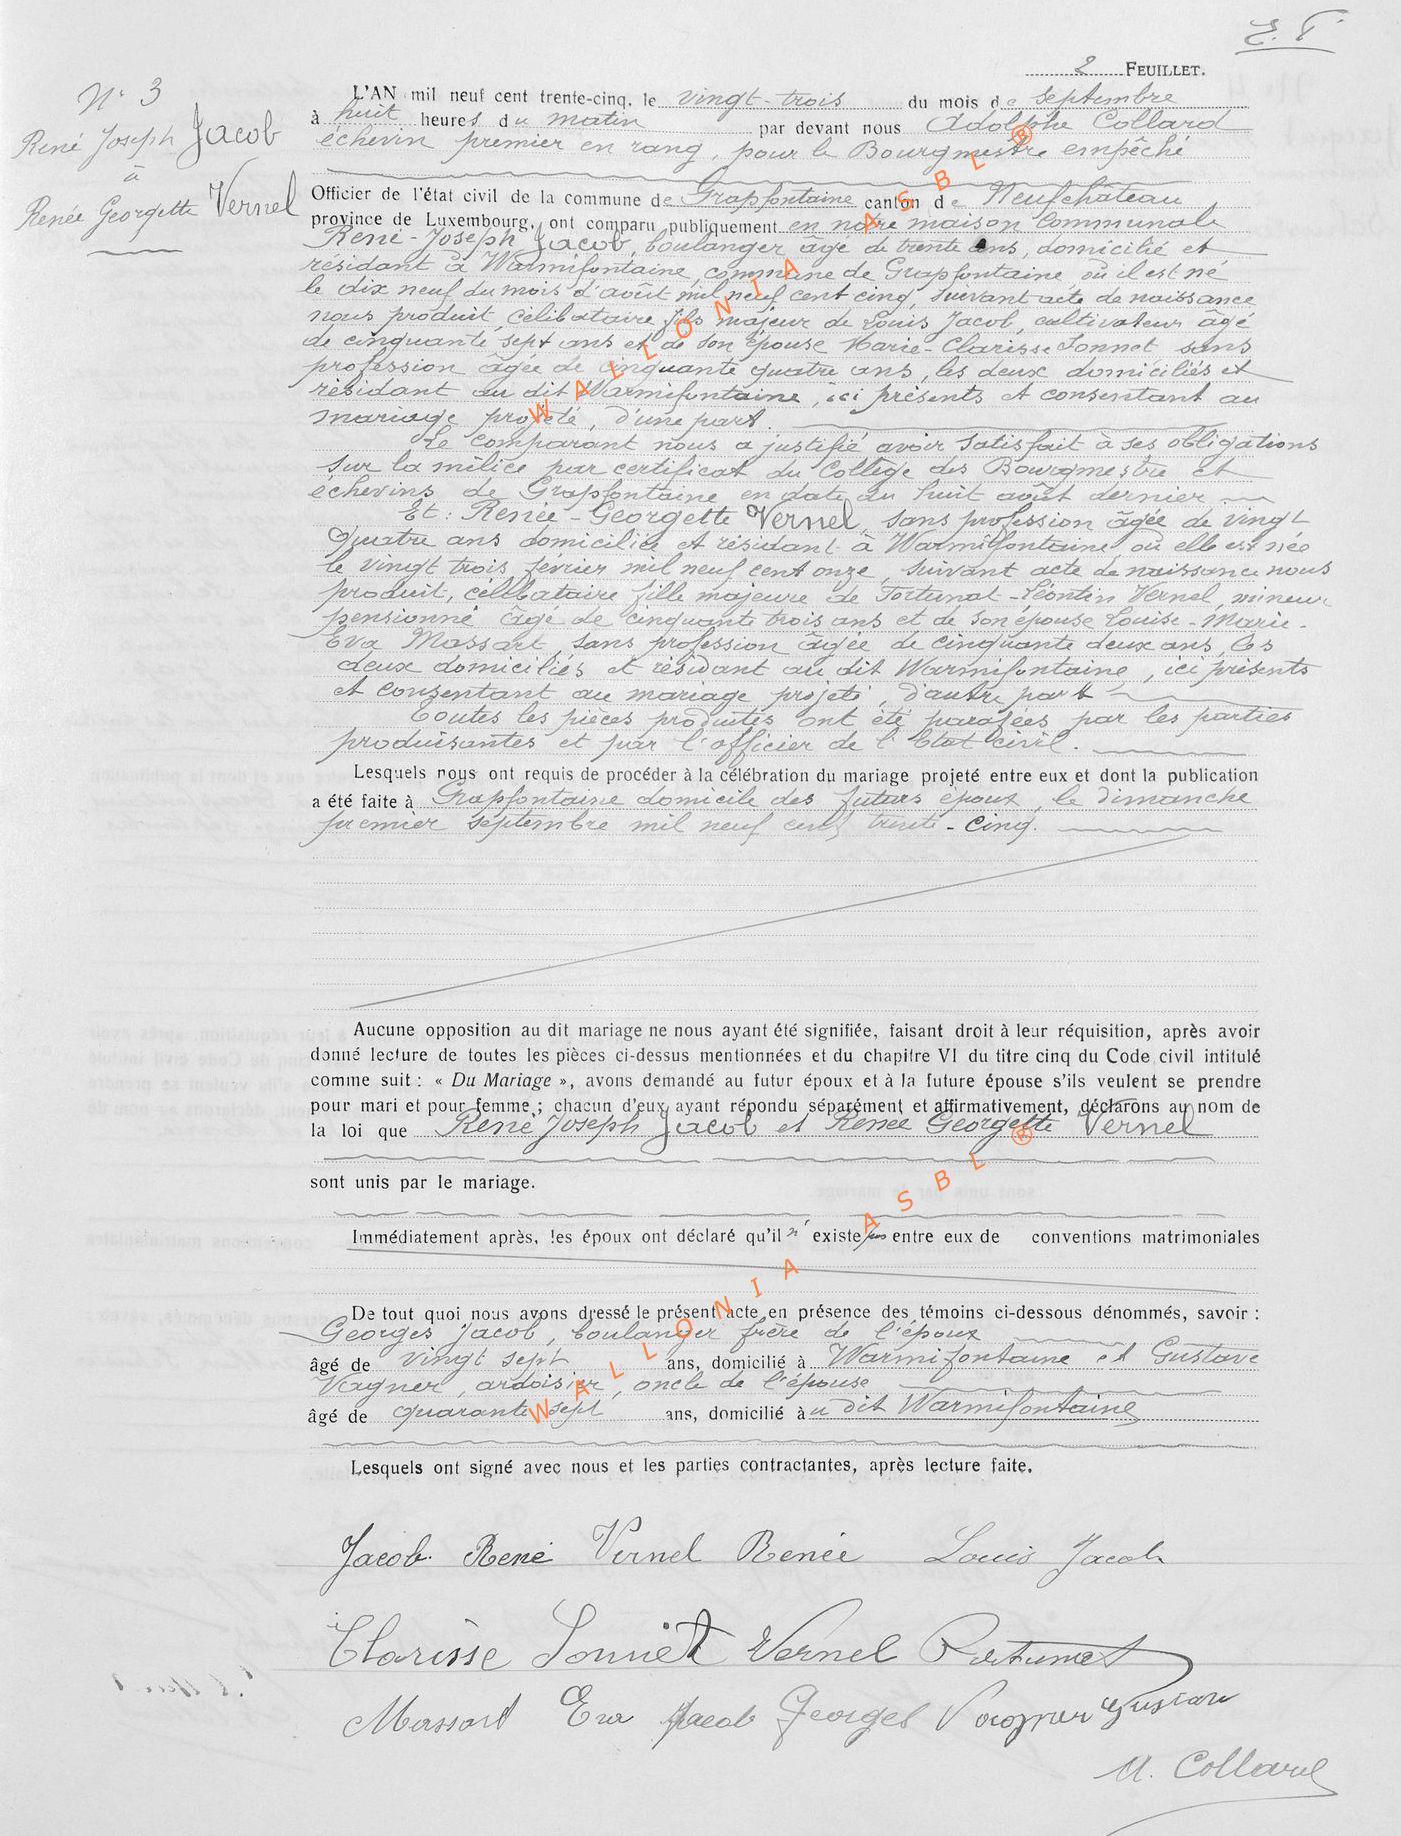 2 FEUILLET.
N° 3
René Joseph Jacob
à
Renée Georgette Vernel
L'AN mil neuf cent trente-cinq, le vingt-trois du mois de septembre
à huit heures du matin par devant nous Adolphe Collard
échevin premier en rang, pour le Bourgmestre empêché
Officier de l'état civil de la commune de Grapfontaine canton de Neufchâteau
province de Luxembourg, ont comparu publiquement en notre maison communale
René-Joseph Jacob, boulanger âgé de trente ans, domicilié et
résidant à Warmifontaine, commune de Grapfontaine, où il est né
le dix neuf du mois d'août mil neuf cent cinq, suivant acte de naissance
nous produit, célibataire fils majeur de Louis Jacob, cultivateur âgé
de cinquante sept ans et de son épouse Marie-Clarisse Sonnet sans
profession âgée de cinquante quatre ans, les deux domiciliés et
résidant au dit Warmifontaine, ici présents et consentant au
mariage projeté, d'une part.
Le comparant nous a justifié avoir satisfait à ses obligations
sur la milice par certificat du Collège des Bourgmestre et
échevins de Grapfontaine en date du huit août dernier.
Et: Renée-Georgette Vernel, sans profession âgée de vingt
quatre ans domiciliée et résidant à Warmifontaine où elle est née
le vingt trois février mil neuf cent onze, suivant acte de naissance nous
produit, célibataire fille majeure de Fortunat-Léontin Vernel, mineur
pensionné âgé de cinquante trois ans et de son épouse Louise-Marie-
Eva Massart, sans profession âgée de cinquante deux ans, les
deux domiciliés et résidant au dit Warmifontaine, ici présents
et consentant au mariage projeté, d'autre part
Toutes les pièces produites ont été parafées par les parties
produisantes et par l'officier de l'Etat civil.
Lesquels nous ont requis de procéder à la célébration du mariage projeté entre eux et dont la publication
a été faite à Grapfontaine domicile des futurs époux, le dimanche
premier septembre mil neuf cent trente-cinq.
Aucune opposition au dit mariage ne nous ayant été signifiée, faisant droit à leur réquisition, après avoir
donné lecture de toutes les pièces ci-dessus mentionnées et du chapitre VI du titre cinq du Code civil intitulé
comme suit : « Du Mariage », avons demandé au futur époux et à la future épouse s'ils veulent se prendre
pour mari et pour femme ; chacun d'eux ayant répondu séparément et affirmativement, déclarons au nom de
la loi que René Joseph Jacob et Renée Georgette Vernel
sont unis par le mariage.
Immédiatement après, les époux ont déclaré qu'il n'existe pas entre eux de conventions matrimoniales
De tout quoi nous avons dressé le présent acte en présence des témoins ci-dessous dénommés, savoir :
Georges Jacob, boulanger frère de l'époux
âgé de vingt sept ans, domicilié à Warmifontaine et Gustave
Vagner, ardoisier, oncle de l'épouse
âgé de quarante sept ans, domicilié au dit Warmifontaine
Lesquels ont signé avec nous et les parties contractantes, après lecture faite.
Jacob René Vernel Renée Louis Jacob
Clarisse Sonnet Vernel
Massart Eva Jacob Georges Gustave
Collard
WALLONIA ASBL ®
WALLONIA ASBL ®